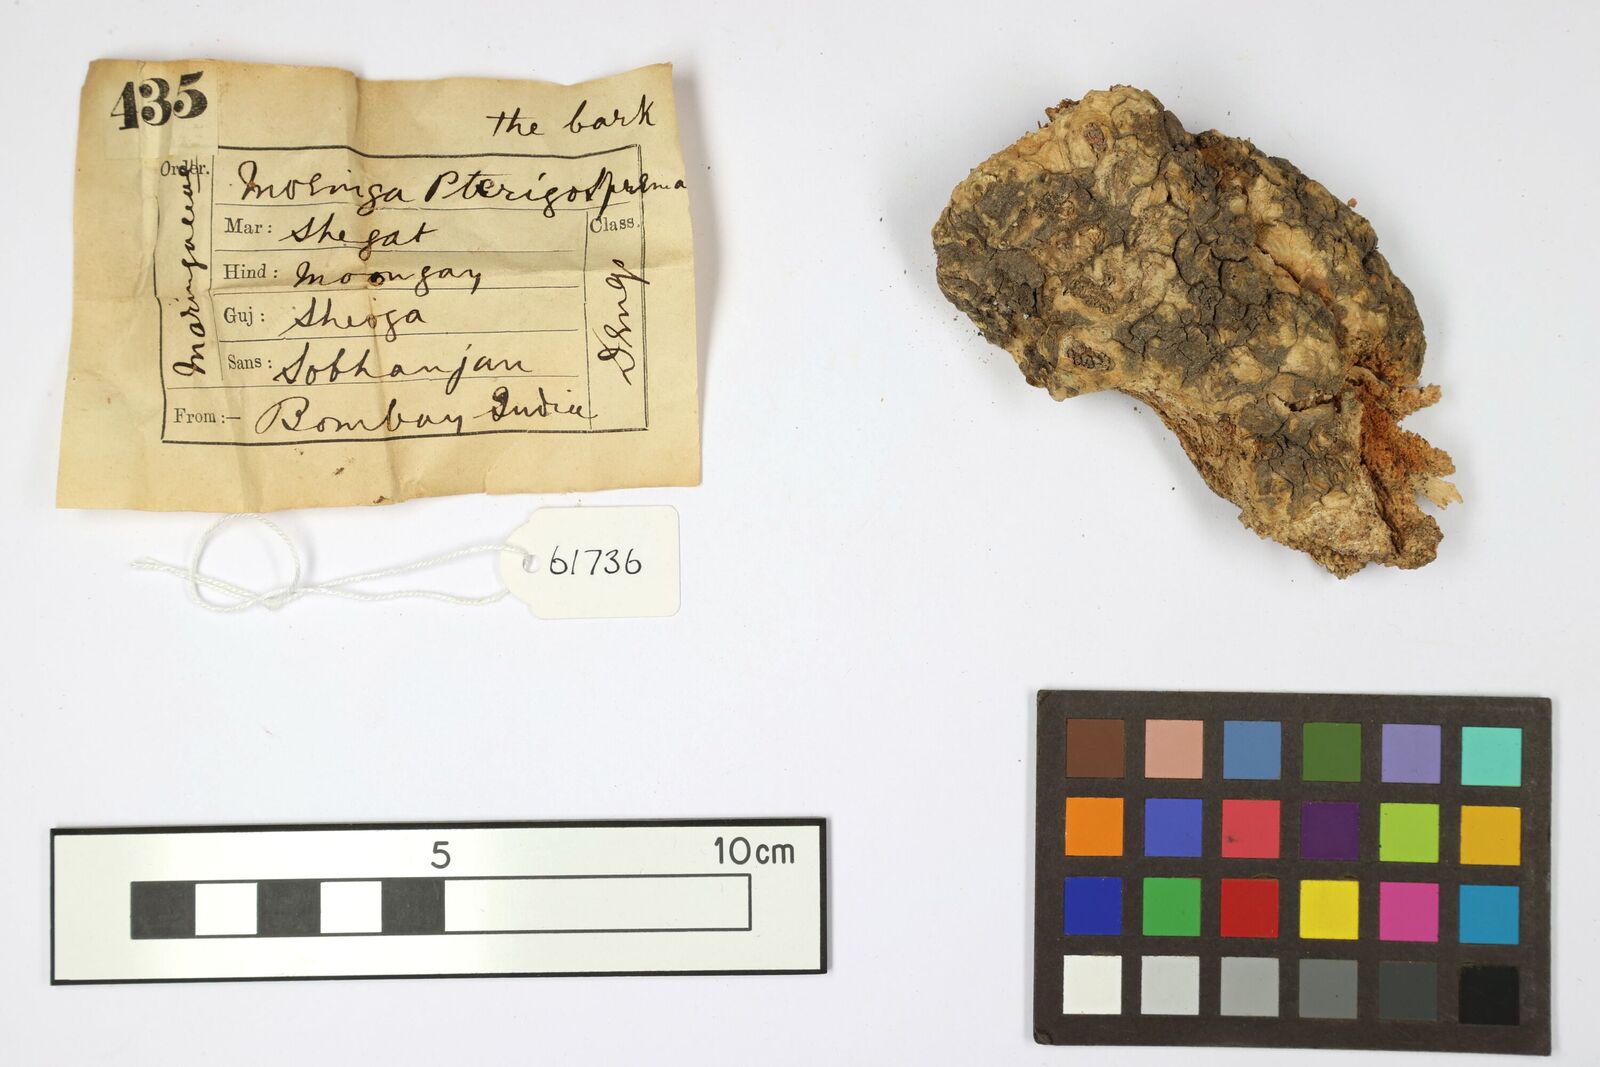 435
the bark
Order.
Maringaceae
Moringa Pterigosperma
Mar: Shegat
Class.
Drugs
Hind: Moongay
Guj: Sheoga
Sans: Sobhanjan
From:- Bombay India
61736
5
10cm